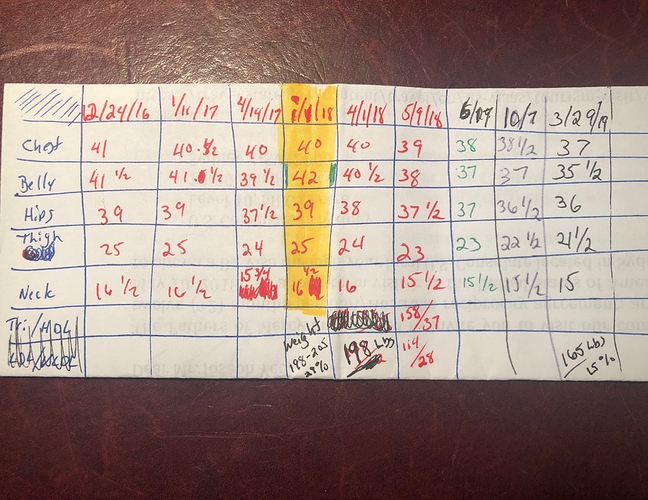 12/24/16 1/11/17 4/19/17 1/1/18 4/1/18 5/9/18 6/19 10/7 3/29/19
Chest 41 40 1/2 40 40 40 39 38 38 1/2 37
Belly 41 1/2 41 1/2 39 1/2 42 40 1/2 38 37 37 35 1/2
Hips 39 39 37 1/2 39 38 37 1/2 37 36 1/2 36
Thigh 25 25 24 25 24 23 23 22 1/2 21 1/2
Neck 16 1/2 16 1/2 15 3/4 16 1/2 16 15 1/2 15 1/2 15 1/2 15
Tri/ 158/37
Weight 198-205 29% 198 Lbs 114/28 165 Lbs 15%